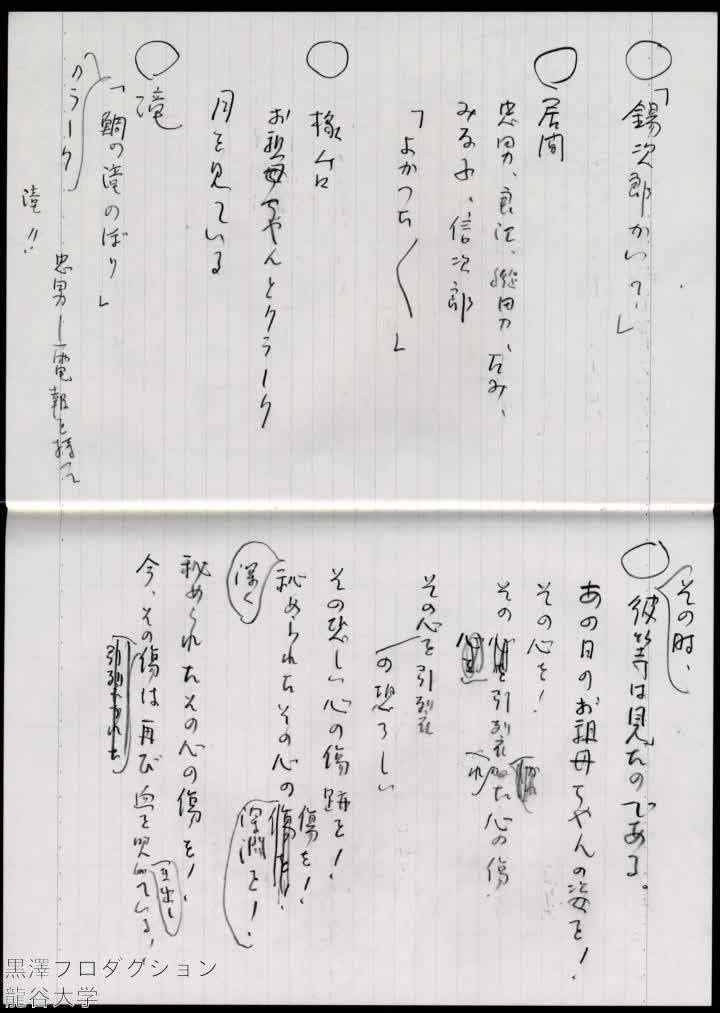 ○「錫次郎かいて」
○居間
忠男、良江、縦男、たみ、
みな子、信次郎
「よかった〱」
○椽台
お祖母ちゃんとクラーク
月を見ている
○滝
「鯛の滝のぼり」
クラーク
滝!!
忠男―電報を持って
その時、
○彼等は見たのである。
あの日のお祖母ちゃんの姿を!
その心を!
その心を引裂れた心の傷
その心を引裂
の恐ろしい
その悲しい心の傷跡を!
深く
秘められたその心の傷を!
深淵を!
秘められたその心の傷を!
今、その傷は再び血を吹いている!
黒澤プロダクション
龍谷大学